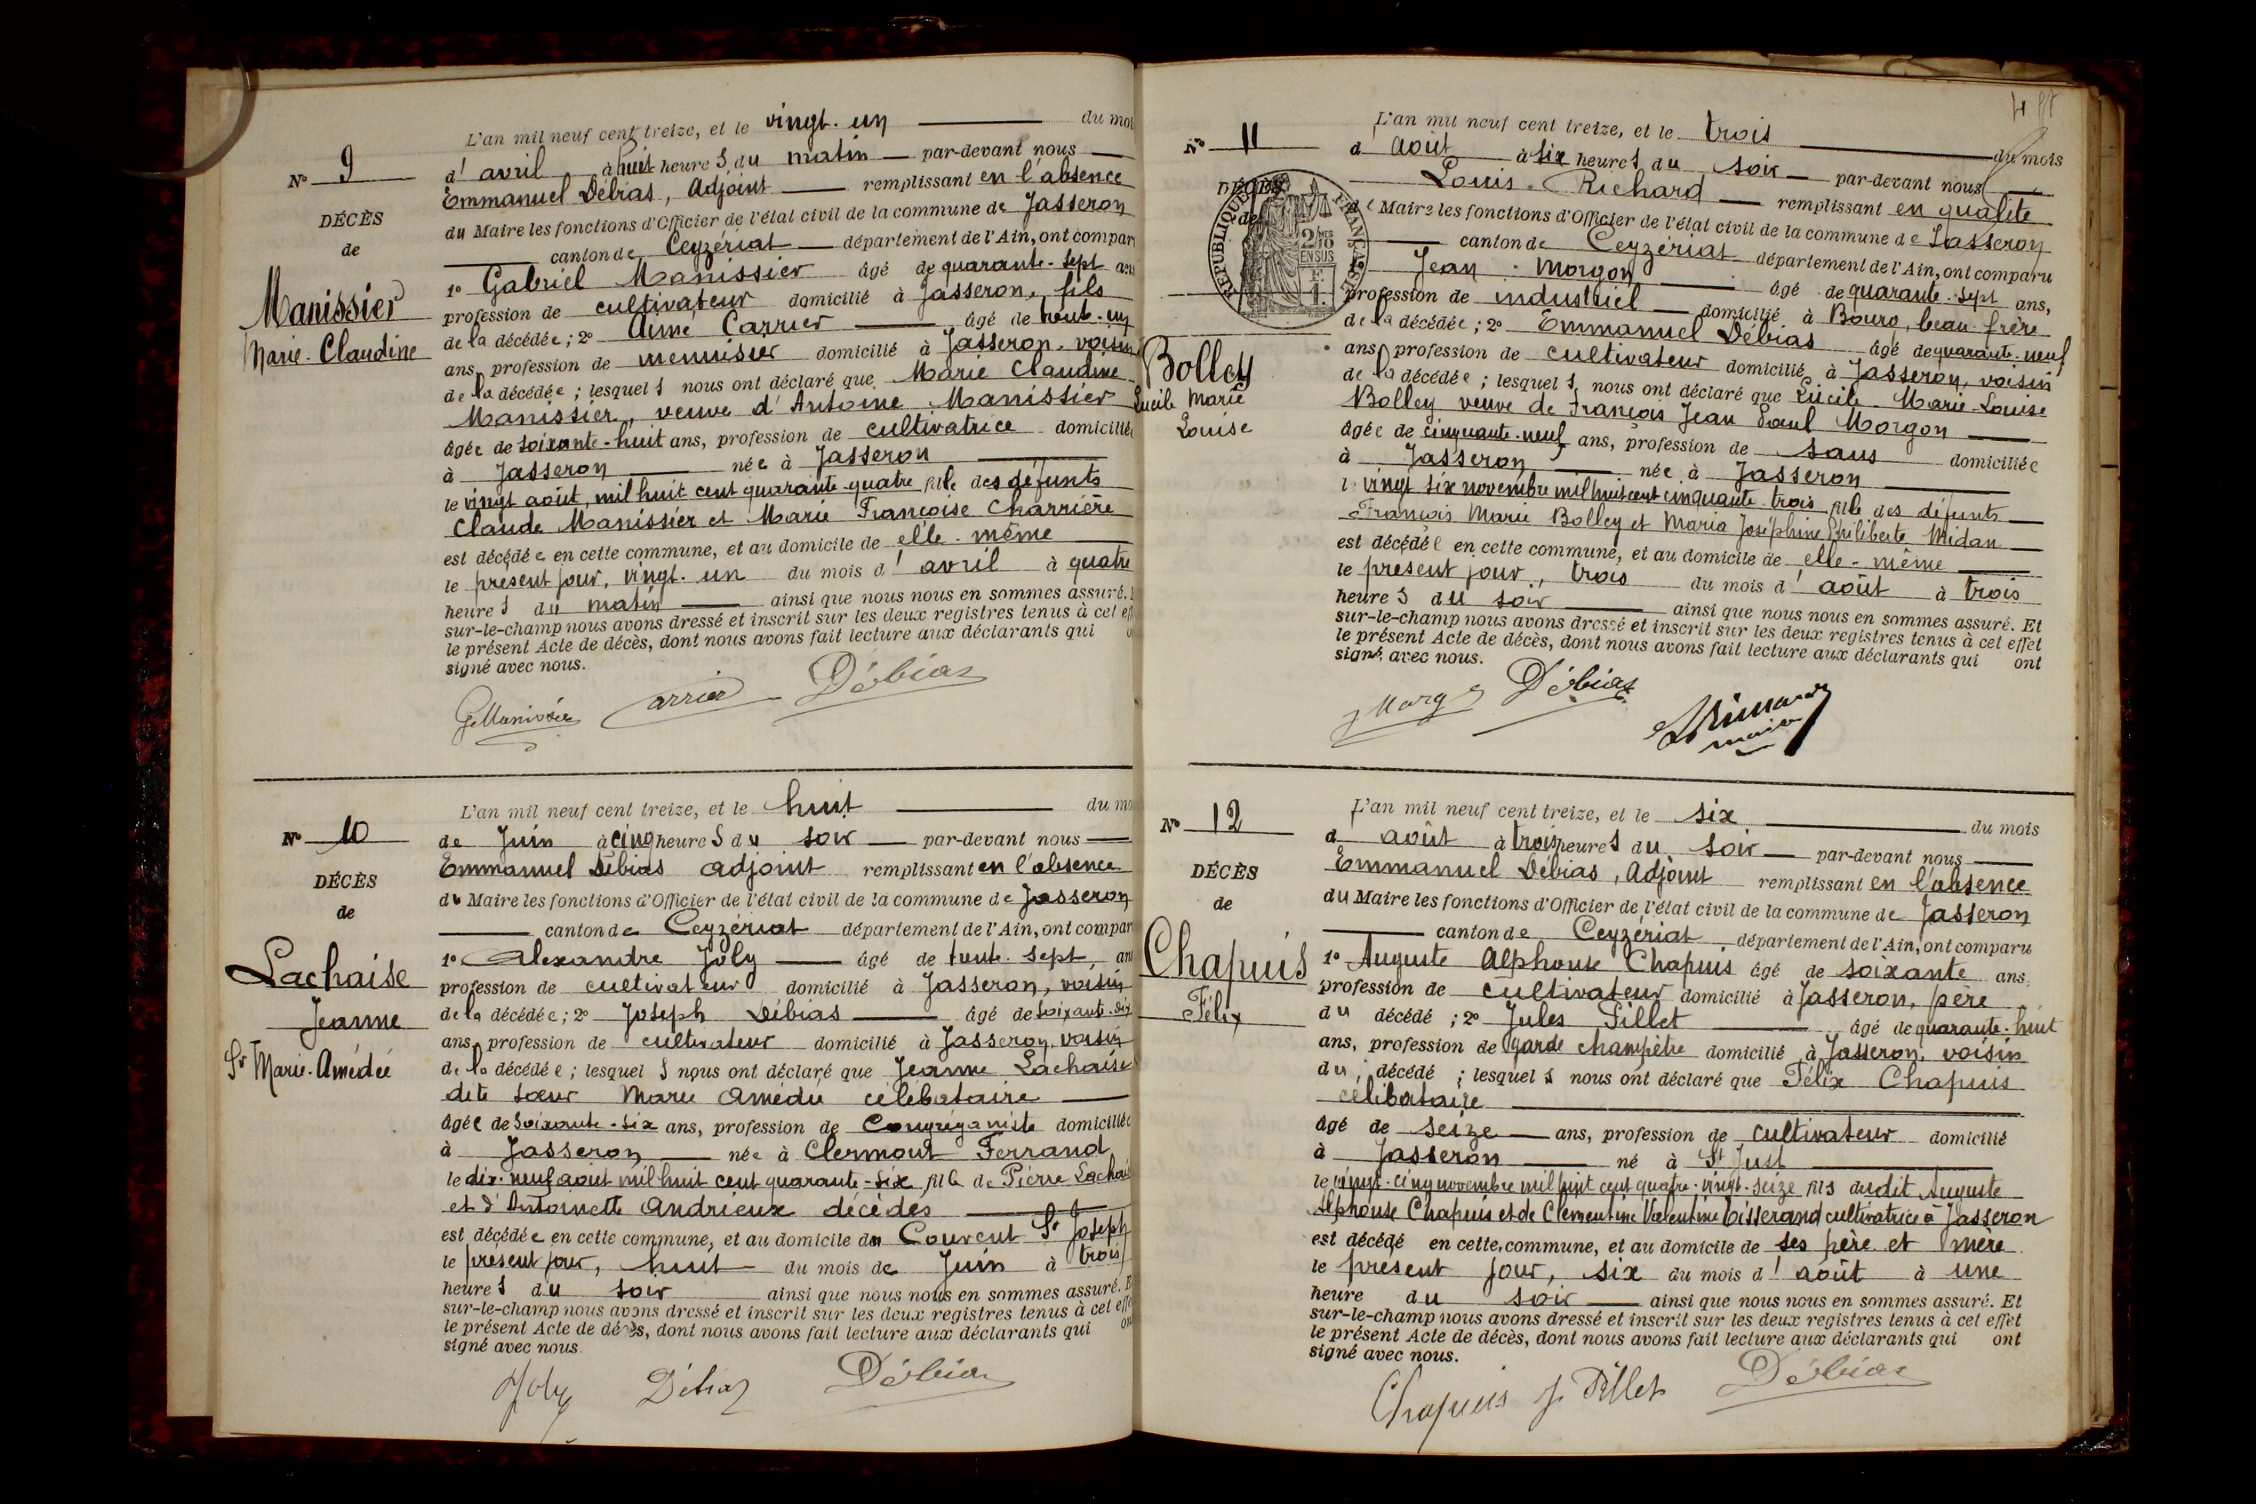 L'an mil neuf cent treize, et le vingt-un du moi
N° 9
d'avril à huit heures du matin par-devant nous
Emmanuel Débias, Adjoint remplissant en l'absence
DÉCÈS
du Maire les fonctions d'Officier de l'état civil de la commune de Jasseron
de
canton de Ceyzériat département de l'Ain, ont compar
Manissier
Marie-Claudine
1° Gabriel Manissier âgé de quarante-sept ans
profession de cultivateur domicilié à Jasseron, fils
de la décédée ; 2° Aimé Carrier âgé de trente-un
ans, profession de menuisier domicilié à Jasseron, voisin
de la décédée ; lesquels nous ont déclaré que Marie Claudine
Manissier, veuve d'Antoine Manissier
âgée de soixante-huit ans, profession de cultivatrice domiciliée
à Jasseron née à Jasseron
le vingt août, mil huit cent quarante-quatre fille des défunts
Claude Manissier et Marie Françoise Charrière
est décédée en cette commune, et au domicile de elle-même
le présent jour, vingt-un du mois d'avril à quatre
heures du matin ainsi que nous nous en sommes assuré. E
sur-le-champ nous avons dressé et inscrit sur les deux registres tenus à cet eff
le présent Acte de décès, dont nous avons fait lecture aux déclarants qui o
signé avec nous.
G Manissier Carrier Débias
L'an mil neuf cent treize, et le huit du mo
N° 10
de Juin à cinq heures du soir par-devant nous
Emmanuel Débias adjoint remplissant en l'absence
DÉCÈS
du Maire les fonctions d'Officier de l'état civil de la commune de Jasseron
de
canton de Ceyzériat département de l'Ain, ont compar
Lachaise
Jeanne
Sr Marie-Amédée
1° Alexandre Joly âgé de trente-sept an
profession de cultivateur domicilié à Jasseron, voisin
de la décédée ; 2° Joseph Débias âgé de soixante-dix
ans, profession de cultivateur domicilié à Jasseron, voisin
de la décédée ; lesquels nous ont déclaré que Jeanne Lachaise
dite sœur Marie Amédée célébataire
âgée de soixante-six ans, profession de Congréganiste domiciliée
à Jasseron née à Clermont Ferrand
le dix-neuf août mil huit cent quarante-six fille de Pierre Lachais
et d'Antoinette Andrieux décédés
est décédée en cette commune, et au domicile du Couvent St Joseph
le présent jour, huit du mois de Juin à trois
heures du soir ainsi que nous nous en sommes assuré. E
sur-le-champ nous avons dressé et inscrit sur les deux registres tenus à cet effe
le présent Acte de décès, dont nous avons fait lecture aux déclarants qui on
signé avec nous.
Joly Débias Débias
L'an mil neuf cent treize, et le trois du mois
N° 11
d août à six heures du soir par-devant nous
Louis Richard remplissant en qualité
DÉCÈS
de
RÉPUBLIQUE FRANÇAISE
2/10 EN SUS
de Maire les fonctions d'Officier de l'état civil de la commune de Jasseron
canton de Ceyzériat département de l'Ain, ont comparu
Bolley
Lucile Marie
Louise
1° Jean Morgon âgé de quarante-sept ans,
profession de industriel domicilié à Bourg, beau-frère
de la décédée ; 2° Emmanuel Débias âgé de quarante-neuf
ans, profession de cultivateur domicilié à Jasseron, voisin
de la décédée ; lesquels nous ont déclaré que Lucile-Marie-Louise
Bolley veuve de François Jean Paul Morgon
âgée de cinquante-neuf ans, profession de sans domiciliée
à Jasseron née à Jasseron
l vingt six novembre mil huit cent cinquante-trois fille des défunts
François Marie Bolley et Maria Joséphine Philiberte Midan
est décédée en cette commune, et au domicile de elle-même
le présent jour, trois du mois d'août à trois
heures du soir ainsi que nous nous en sommes assuré. Et
sur-le-champ nous avons dressé et inscrit sur les deux registres tenus à cet effet
le présent Acte de décès, dont nous avons fait lecture aux déclarants qui ont
signé avec nous.
J Morgon Débias
maire
L'an mil neuf cent treize, et le six du mois
N° 12
d août à trois heures du soir par-devant nous
Emmanuel Débias, Adjoint remplissant en l'absence
DÉCÈS
du Maire les fonctions d'Officier de l'état civil de la commune de Jasseron
de
canton de Ceyzériat département de l'Ain, ont comparu
Chapuis
Félix
1° Auguste Alphonse Chapuis âgé de soixante ans,
profession de cultivateur domicilié à Jasseron, père
du décédé ; 2° Jules Pillet âgé de quarante-huit
ans, profession de garde champêtre domicilié à Jasseron, voisin
du décédé ; lesquels nous ont déclaré que Félix Chapuis
célibataire
âgé de seize ans, profession de cultivateur domicilié
à Jasseron né à St Just
le vingt-cinq novembre mil huit cent quatre-vingt-seize fils dudit Auguste
Alphonse Chapuis et de Clémentine Valentine Tisserand cultivatrice à Jasseron
est décédé en cette commune, et au domicile de ses père et mère
le présent jour, six du mois d'août à une
heure du soir ainsi que nous nous en sommes assuré. Et
sur-le-champ nous avons dressé et inscrit sur les deux registres tenus à cet effet
le présent Acte de décès, dont nous avons fait lecture aux déclarants qui ont
signé avec nous.
Chapuis J Pillet Débias